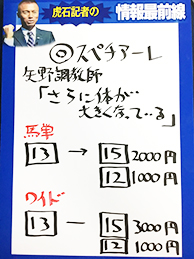 虎石記者の
情報最前線
◎スペチアーレ
矢野調教師
「さらに体が
大きくなっている」
馬単
13 → 15 2000円
12 1000円
ワイド
13 ― 15 3000円
12 1000円